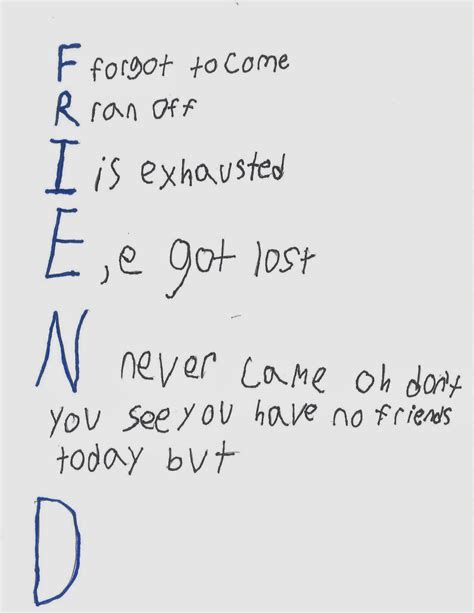 F forgot to come
R ran off
I is exhausted
E, e got lost
N never came oh don't
you see you have no friends
today but
D